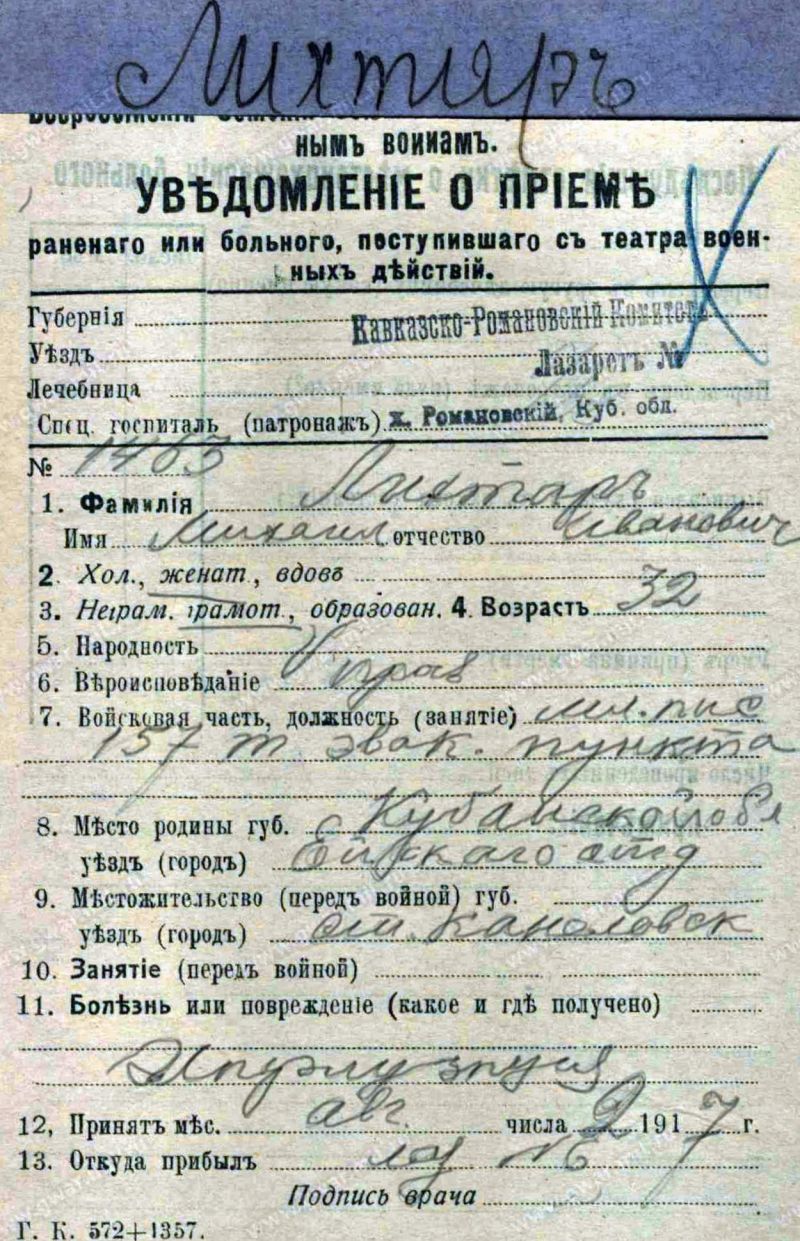 Лихтаръ
нымъ воинамъ.
УВѢДОМЛЕНІЕ О ПРІЕМѢ
раненаго или больного, поступившаго съ театра воен-
ныхъ дѣйствій.
Губернія
Кавказско-Романовскій Комитетъ
Уѣздъ
Лазаретъ №
Лечебница
Спец. госпиталь (патронажъ) х. Романовскій, Куб. обл.
№ 1463
1. Фамилія Лихтаръ
Имя Михаил отчество Иванович
2. Хол., женат, вдовъ
3. Неграм. грамот., образован. 4. Возрастъ 32
5. Народность
6. Вѣроисповѣданіе прав
7. Войсковая часть, должность (занятіе) мл. пис
157 т. эвак. пункта
8. Мѣсто родины губ. Кубанской обл
уѣздъ (городъ) Ейскаго отд
9. Мѣстожительство (передъ войной) губ.
уѣздъ (городъ) ст.
10. Занятіе (передъ войной)
11. Болѣзнь или поврежденіе (какое и гдѣ получено)
12, Принятъ мѣс. авг. числа 2 1917 г.
13. Откуда прибылъ
Подпись врача
Г. К. 572+1357.